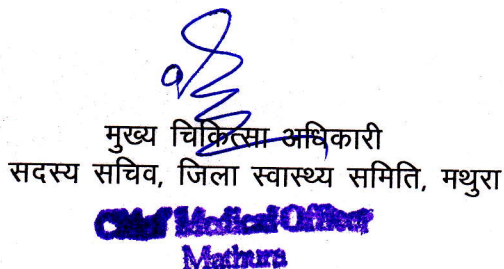 मुख्य चिकित्सा अधिकारी
सदस्य सचिव, जिला स्वास्थ्य समिति, मथुरा
Chief Medical Officer
Mathura